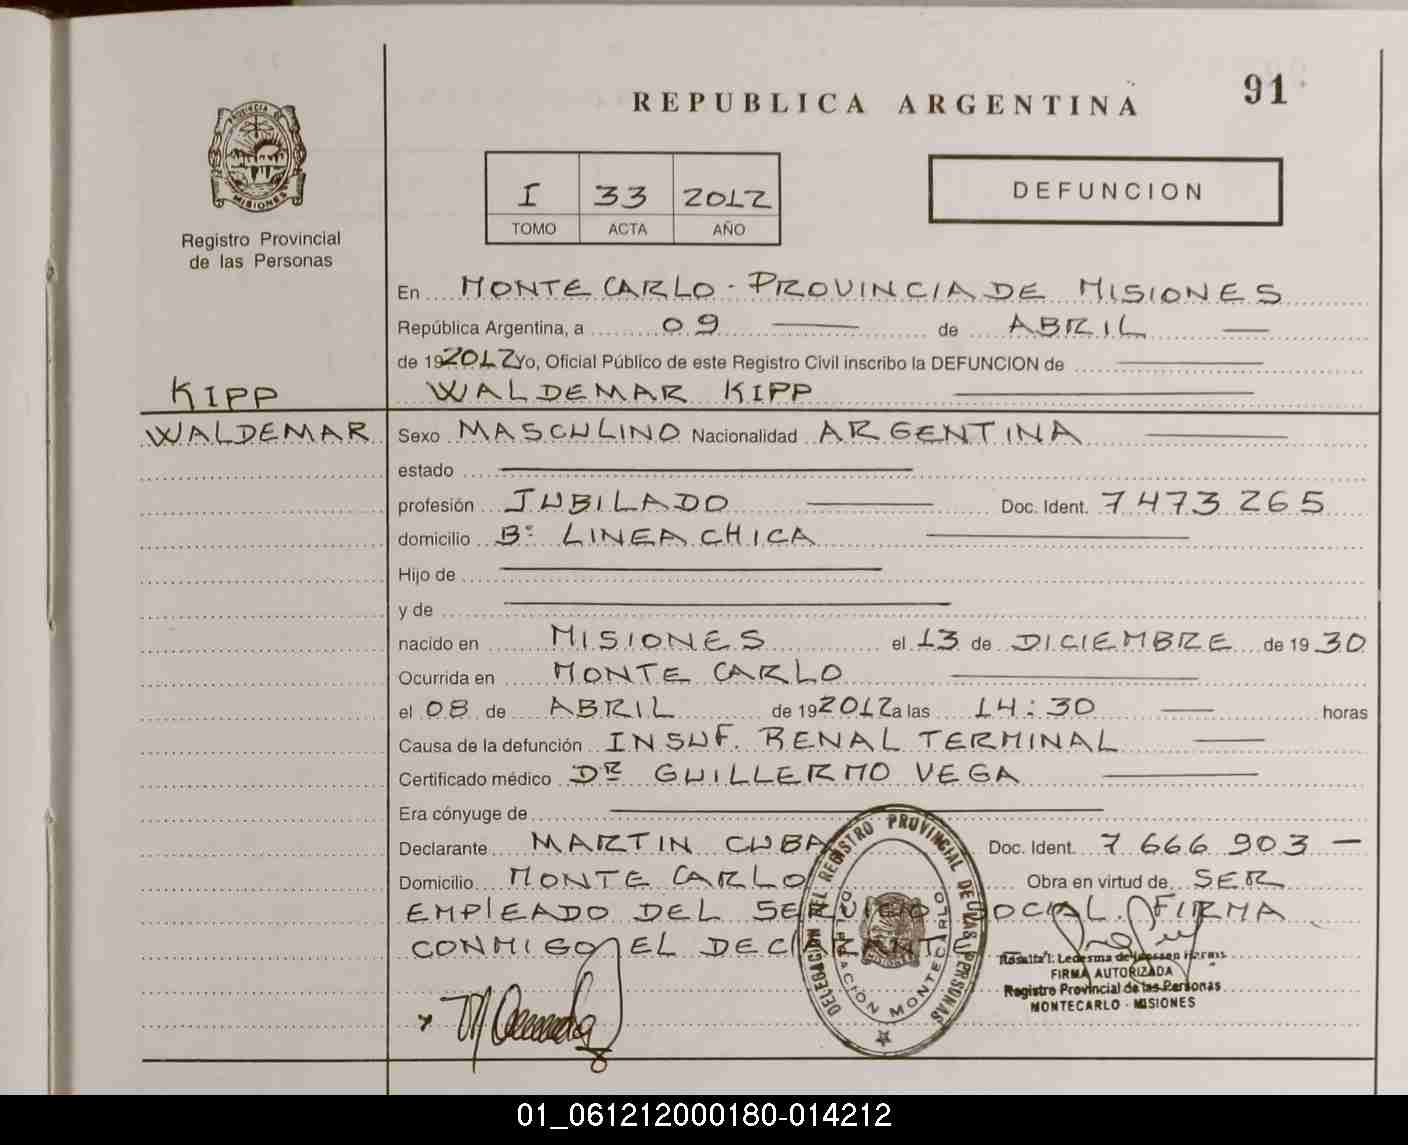 91
REPUBLICA ARGENTINA
PROVINCIA DE
MISIONES
Registro Provincial
de las Personas
I 33 2012
TOMO ACTA AÑO
DEFUNCION
En MONTE CARLO - PROVINCIA DE MISIONES
República Argentina, a 09 de ABRIL
de 192012 Yo, Oficial Público de este Registro Civil inscribo la DEFUNCION de
KIPP WALDEMAR KIPP
WALDEMAR Sexo MASCULINO Nacionalidad ARGENTINA
estado
profesión JUBILADO Doc. Ident. 7473265
domicilio Bº LINEA CHICA
Hijo de
y de
nacido en MISIONES el 13 de DICIEMBRE de 1930
Ocurrida en MONTE CARLO
el 08 de ABRIL de 192012 a las 14:30 horas
Causa de la defunción INSUF. RENAL TERMINAL
Certificado médico DR GUILLERMO VEGA
Era cónyuge de
Declarante MARTIN CUBA Doc. Ident. 7 666 903 —
Domicilio MONTE CARLO Obra en virtud de SER
EMPLEADO DEL SERVICIO SOCIAL. FIRMA
CONMIGO EL DECLARANTE
DELEGACION DEL REGISTRO PROVINCIAL DE LAS PERSONAS
MONTECARLO
Ledesma de
FIRMA AUTORIZADA
Registro Provincial de las Personas
MONTECARLO - MISIONES
01_061212000180-014212